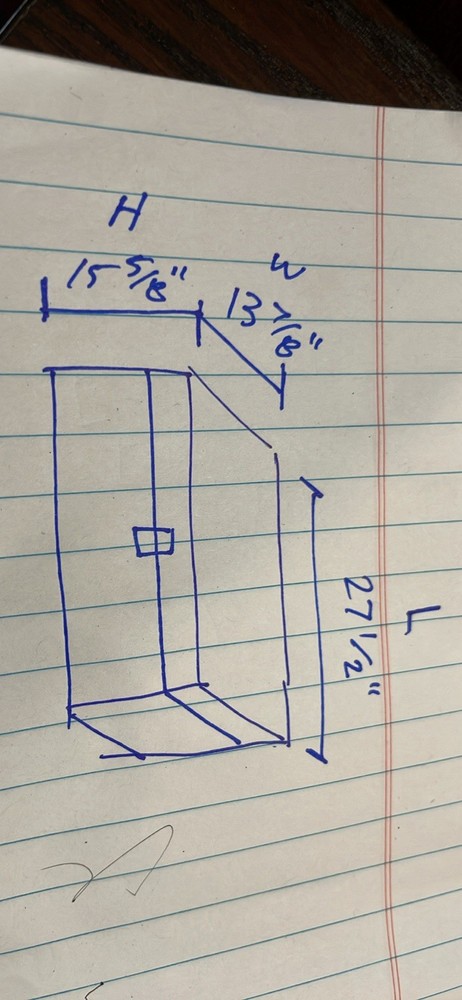 H
15 5/8"
W
13 7/8"
L
27 1/2"